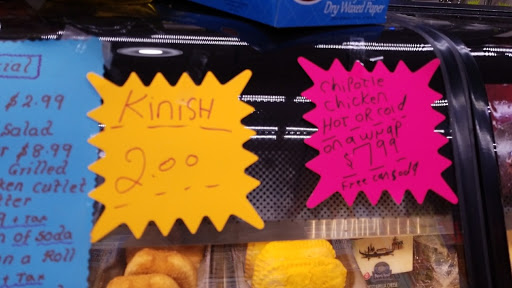 Dry Waxed Paper
cial
$2.99
Salad
$8.99
Grilled
cutlet
+ TAX
n of soda
n a Roll
+ TAX
KINISH
2.00
Chipotle
chicken
Hot OR cold
on a wrap
$7.99
Free can soda